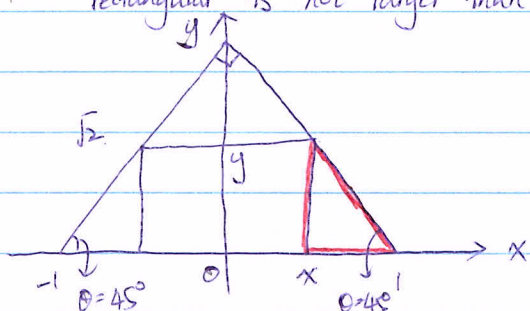 rectangular is not larger than
y
√2
y
-1
0
x
1
x
θ=45°
θ=45°